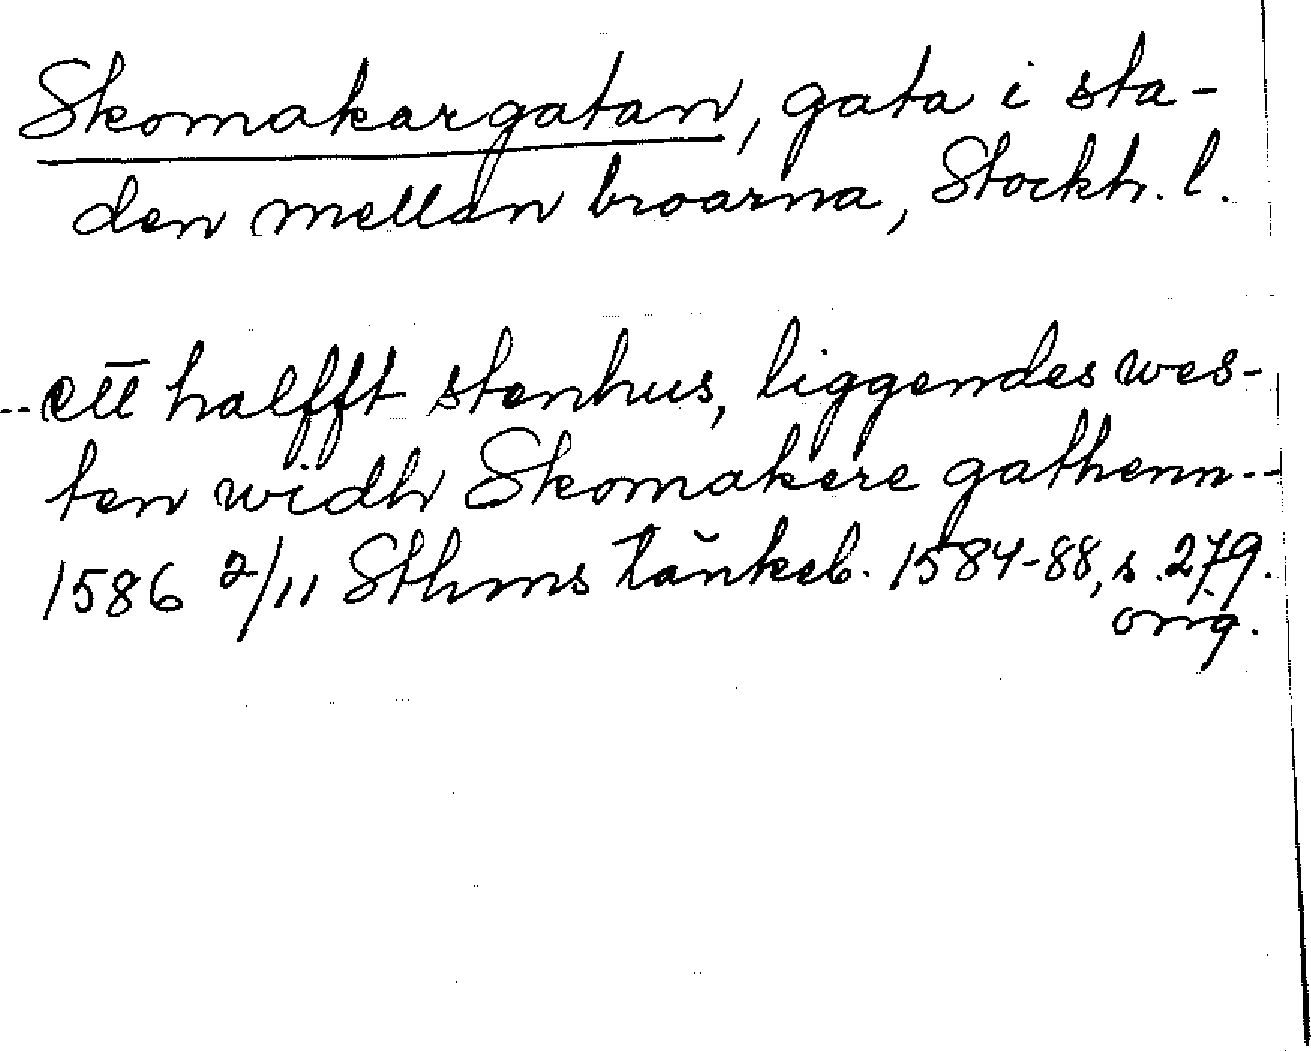 Skomakargatan, gata i sta-
den mellan broarna, Stockh. l.
--ett halfft stenhus, liggendes wes-
ten widh Skomakere gathenn--
1586 2/11 Sthms tänkeb. 1584-88, s. 279.
orig.